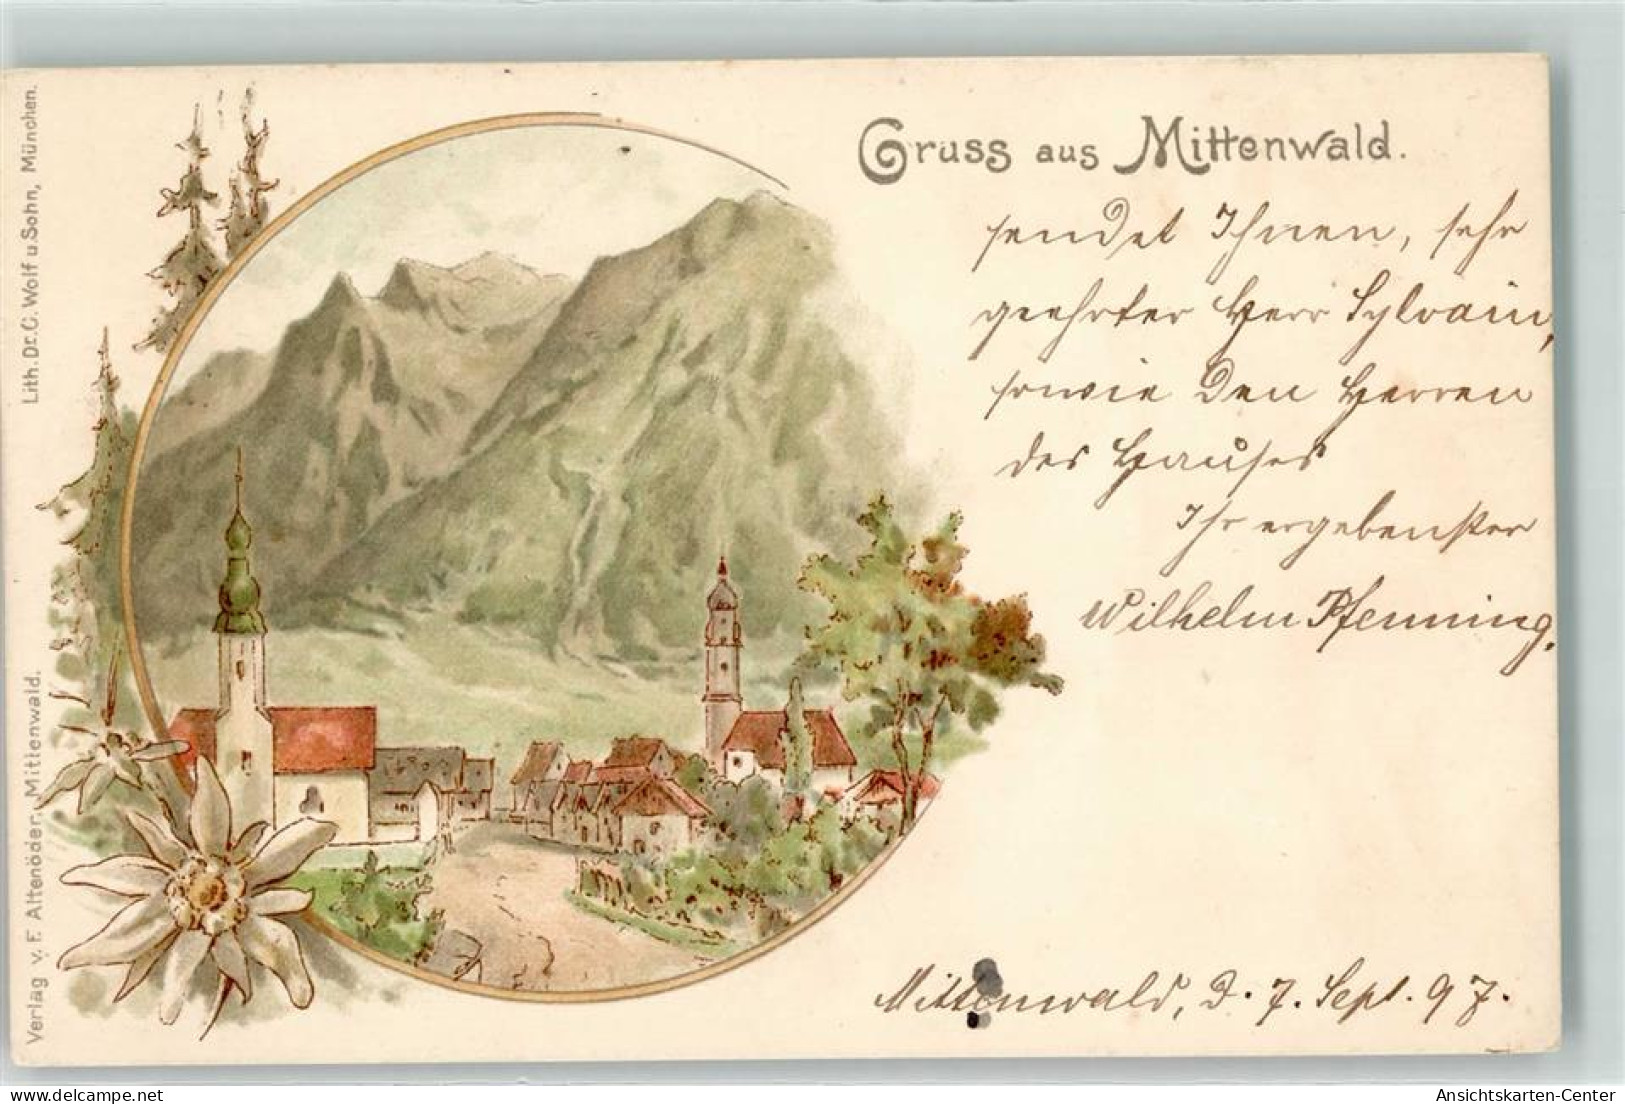 Gruss aus Mittenwald.
sendet Ihnen, sehr
geehrter Herr Sylvain,
sowie den Herren
des Hauses
Ihr ergebenster
Wilhelm Pfenning.
Mittenwald, d. 7. Sept. 97.
Lith. Dr. C. Wolf u. Sohn, München.
Verlag v. F. Altenöder, Mittenwald.
delcampe.net
Ansichtskarten-Center